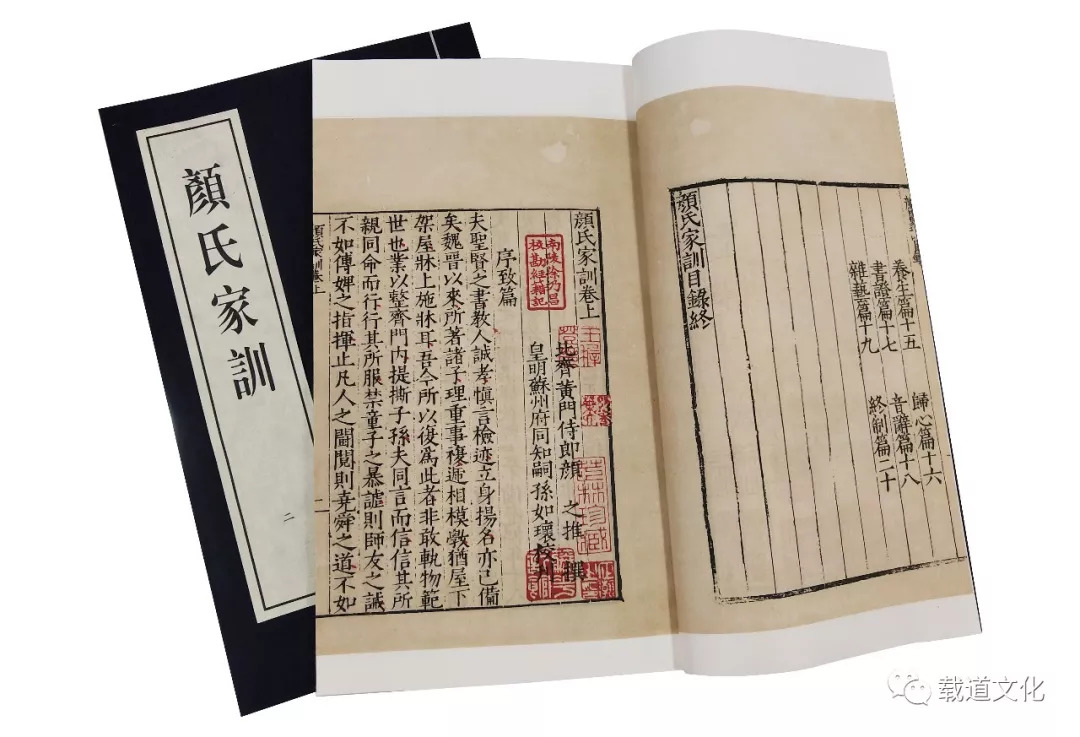 顏氏家訓
二
養生篇十五 歸心篇十六
書證篇十七 音辭篇十八
雜藝篇十九 終制篇二十
顏氏家訓目錄終
顏氏家訓卷上
北齊黃門侍郎顏 之推 撰
皇明蘇州府同知嗣孫如瓌校刊
南陵徐乃昌
校勘經籍記
序致篇
夫聖賢之書教人誠孝慎言檢迹立身揚名亦已備
矣魏晉以來所著諸子理重事複遞相模斆猶屋下
架屋牀上施牀耳吾今所以復為此者非敢軌物範
世也業以整齊門內提撕子孫夫同言而信信其所
親同命而行行其所服禁童子之暴謔則師友之誡
不如傅婢之指揮止凡人之鬬鬩則堯舜之道不如
顏氏家訓卷上
载道文化